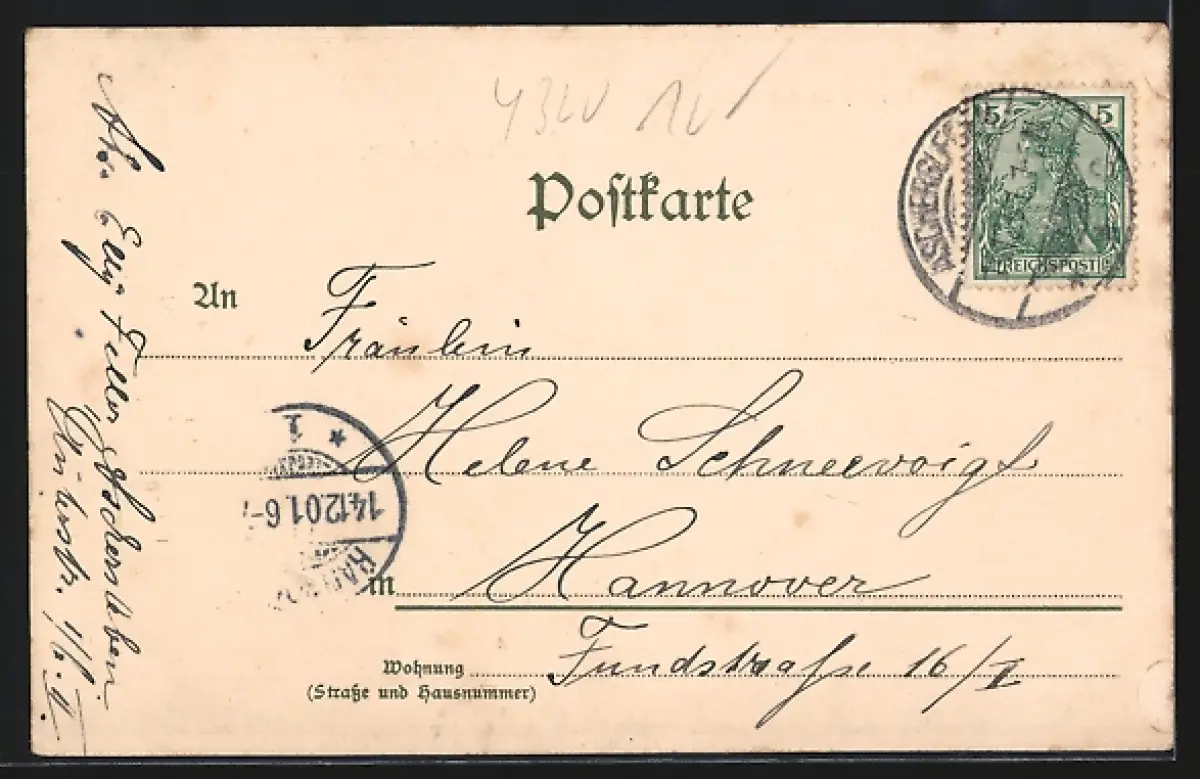 4320
Postkarte
ASCHERSLEBEN
5 5
REICHSPOST
An Fräulein
Helene Schneevoigt
in Hannover
Wohnung Fundstraße 16/I
(Straße und Hausnummer)
1
14.12.01.6-7
HANNOVER
Elly Feller Aschersleben